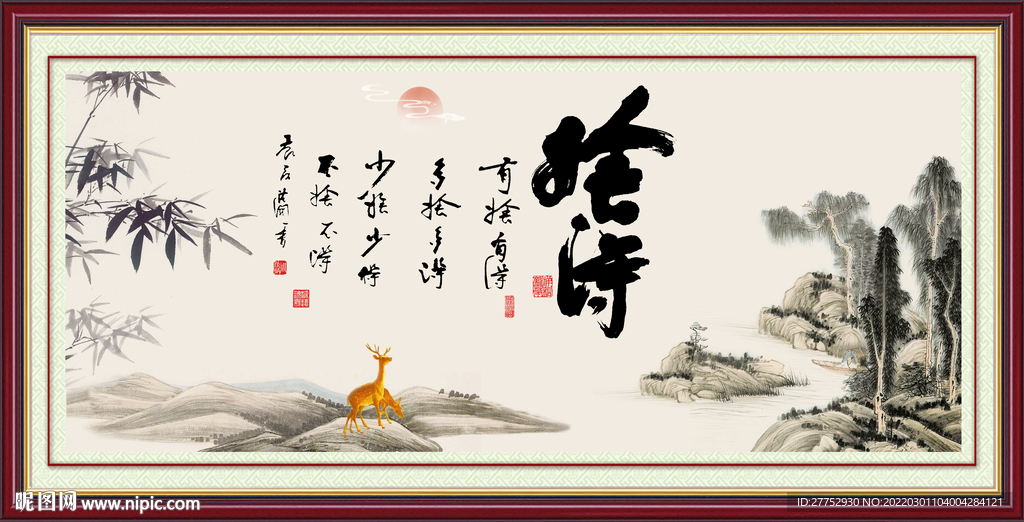 捨得
有捨有得
多捨多得
少捨少得
不捨不得
昵图网 www.nipic.com
ID:27752930 NO:20220301104004284121